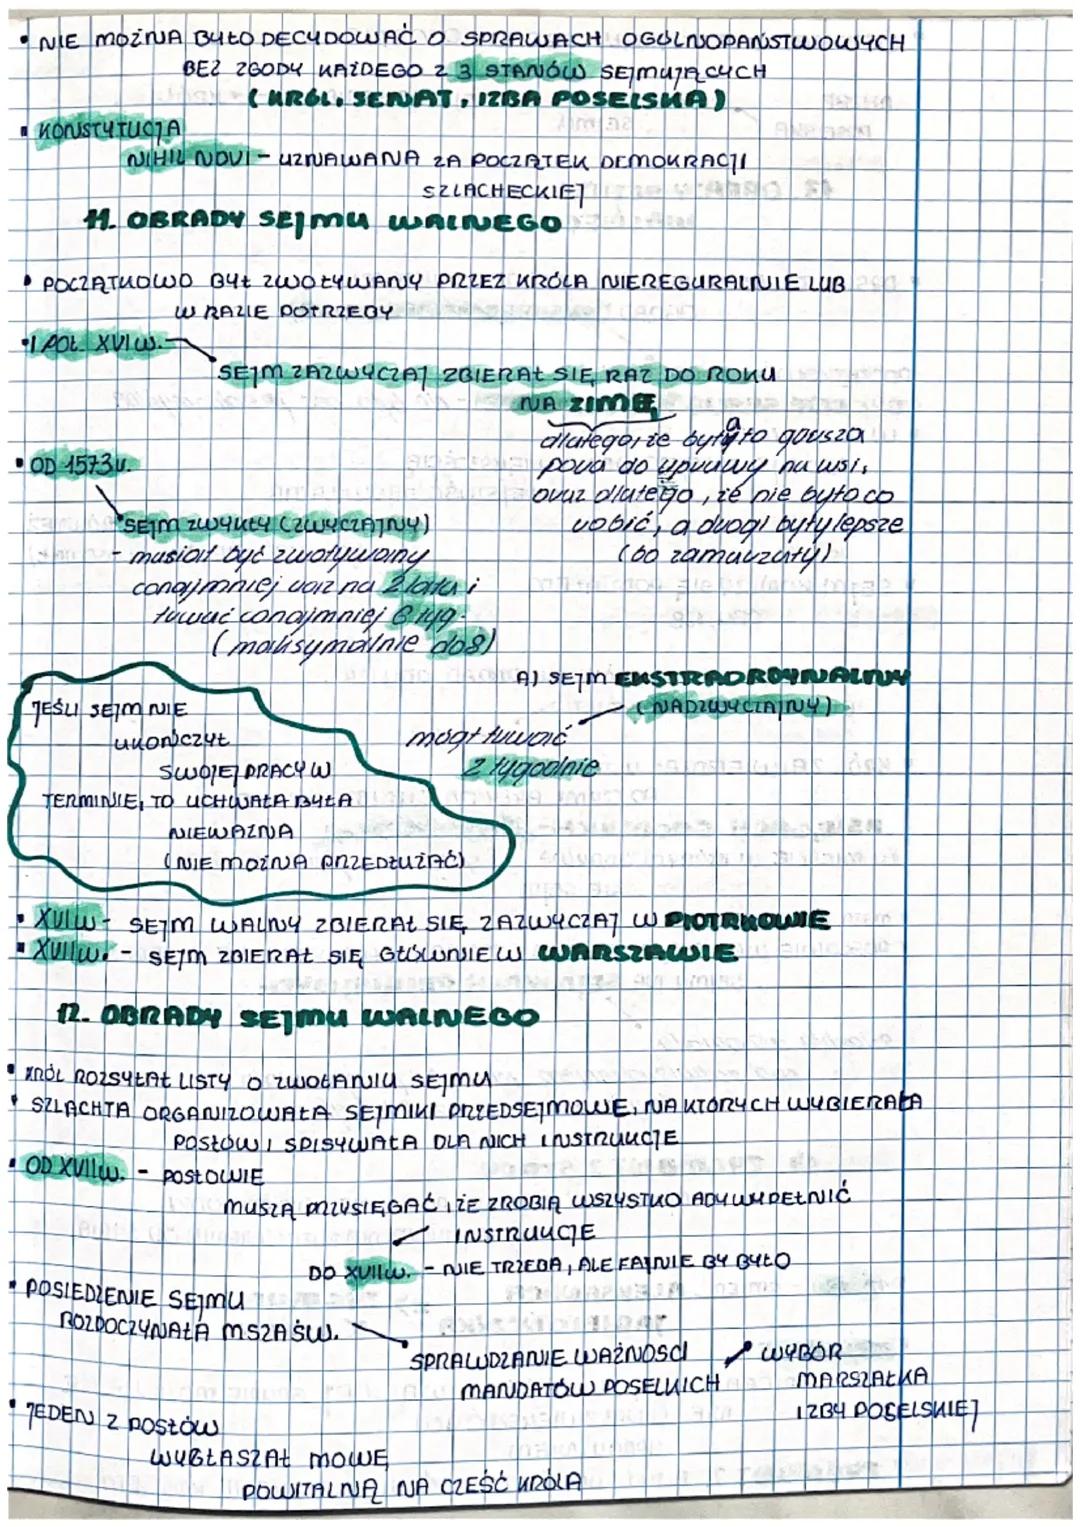 • NIE MOŻNA BYŁO DECYDOWAĆ O SPRAWACH OGÓLNOPAŃSTWOWYCH
BEZ ZGODY KAŻDEGO Z 3 STANÓW SEJMUJĄCYCH
(KRÓL, SENAT, IZBA POSELSKA)
▪ KONSTYTUCJA
NIHIL NOVI - UZNAWANA ZA POCZĄTEK DEMOKRACJI
SZLACHECKIEJ
11. OBRADY SEJMU WALNEGO
• POCZĄTKOWO BYŁ ZWOŁYWANY PRZEZ KRÓLA NIEREGURALNIE LUB
W RAZIE POTRZEBY
• I POŁ. XVI W.
SEJM ZAZWYCZAJ ZBIERAŁ SIĘ RAZ DO ROKU
NA ZIMĘ
dlatego, że była to gorsza
pora do uprawy na wsi,
oraz dlatego, że nie było co
robić, a drogi były lepsze
(bo zamarzały)
• OD 1573 r.
SEJM ZWYKŁY (ZWYCZAJNY)
- musiał być zwoływany
conajmniej raz na 2 lata i
trwać conajmniej 6 tyg.
(maksymalnie do 8)
A) SEJM EKSTRAORDYNALNY
(NADZWYCZAJNY)
mógł trwać
2 tygodnie
JEŚLI SEJM NIE
UKOŃCZYŁ
SWOJEJ PRACY W
TERMINIE, TO UCHWAŁA BYŁA
NIEWAŻNA
(NIE MOŻNA PRZEDŁUŻAĆ)
• XVI W - SEJM WALNY ZBIERAŁ SIĘ ZAZWYCZAJ W PIOTRKOWIE
▪ XVII W. - SEJM ZBIERAŁ SIĘ GŁÓWNIE W WARSZAWIE
12. OBRADY SEJMU WALNEGO
• KRÓL ROZSYŁAŁ LISTY O ZWOŁANIU SEJMU
• SZLACHTA ORGANIZOWAŁA SEJMIKI PRZEDSEJMOWE, NA KTÓRYCH WYBIERAŁA
POSŁÓW I SPISYWAŁA DLA NICH INSTRUKCJE
• OD XVII W. - POSŁOWIE
MUSZĄ PRZYSIĘGAĆ, ŻE ZROBIĄ WSZYSTKO ABY WYPEŁNIĆ
INSTRUKCJE
DO XVII W. - NIE TRZEBA, ALE FAJNIE BY BYŁO
• POSIEDZENIE SEJMU
ROZPOCZYNAŁA MSZA ŚW.
SPRAWDZANIE WAŻNOŚCI
MANDATÓW POSELKICH
WYBÓR
MARSZAŁKA
IZBY POSELSKIEJ
• JEDEN Z POSŁÓW
WYGŁASZAŁ MOWĘ
POWITALNĄ NA CZEŚĆ KRÓLA